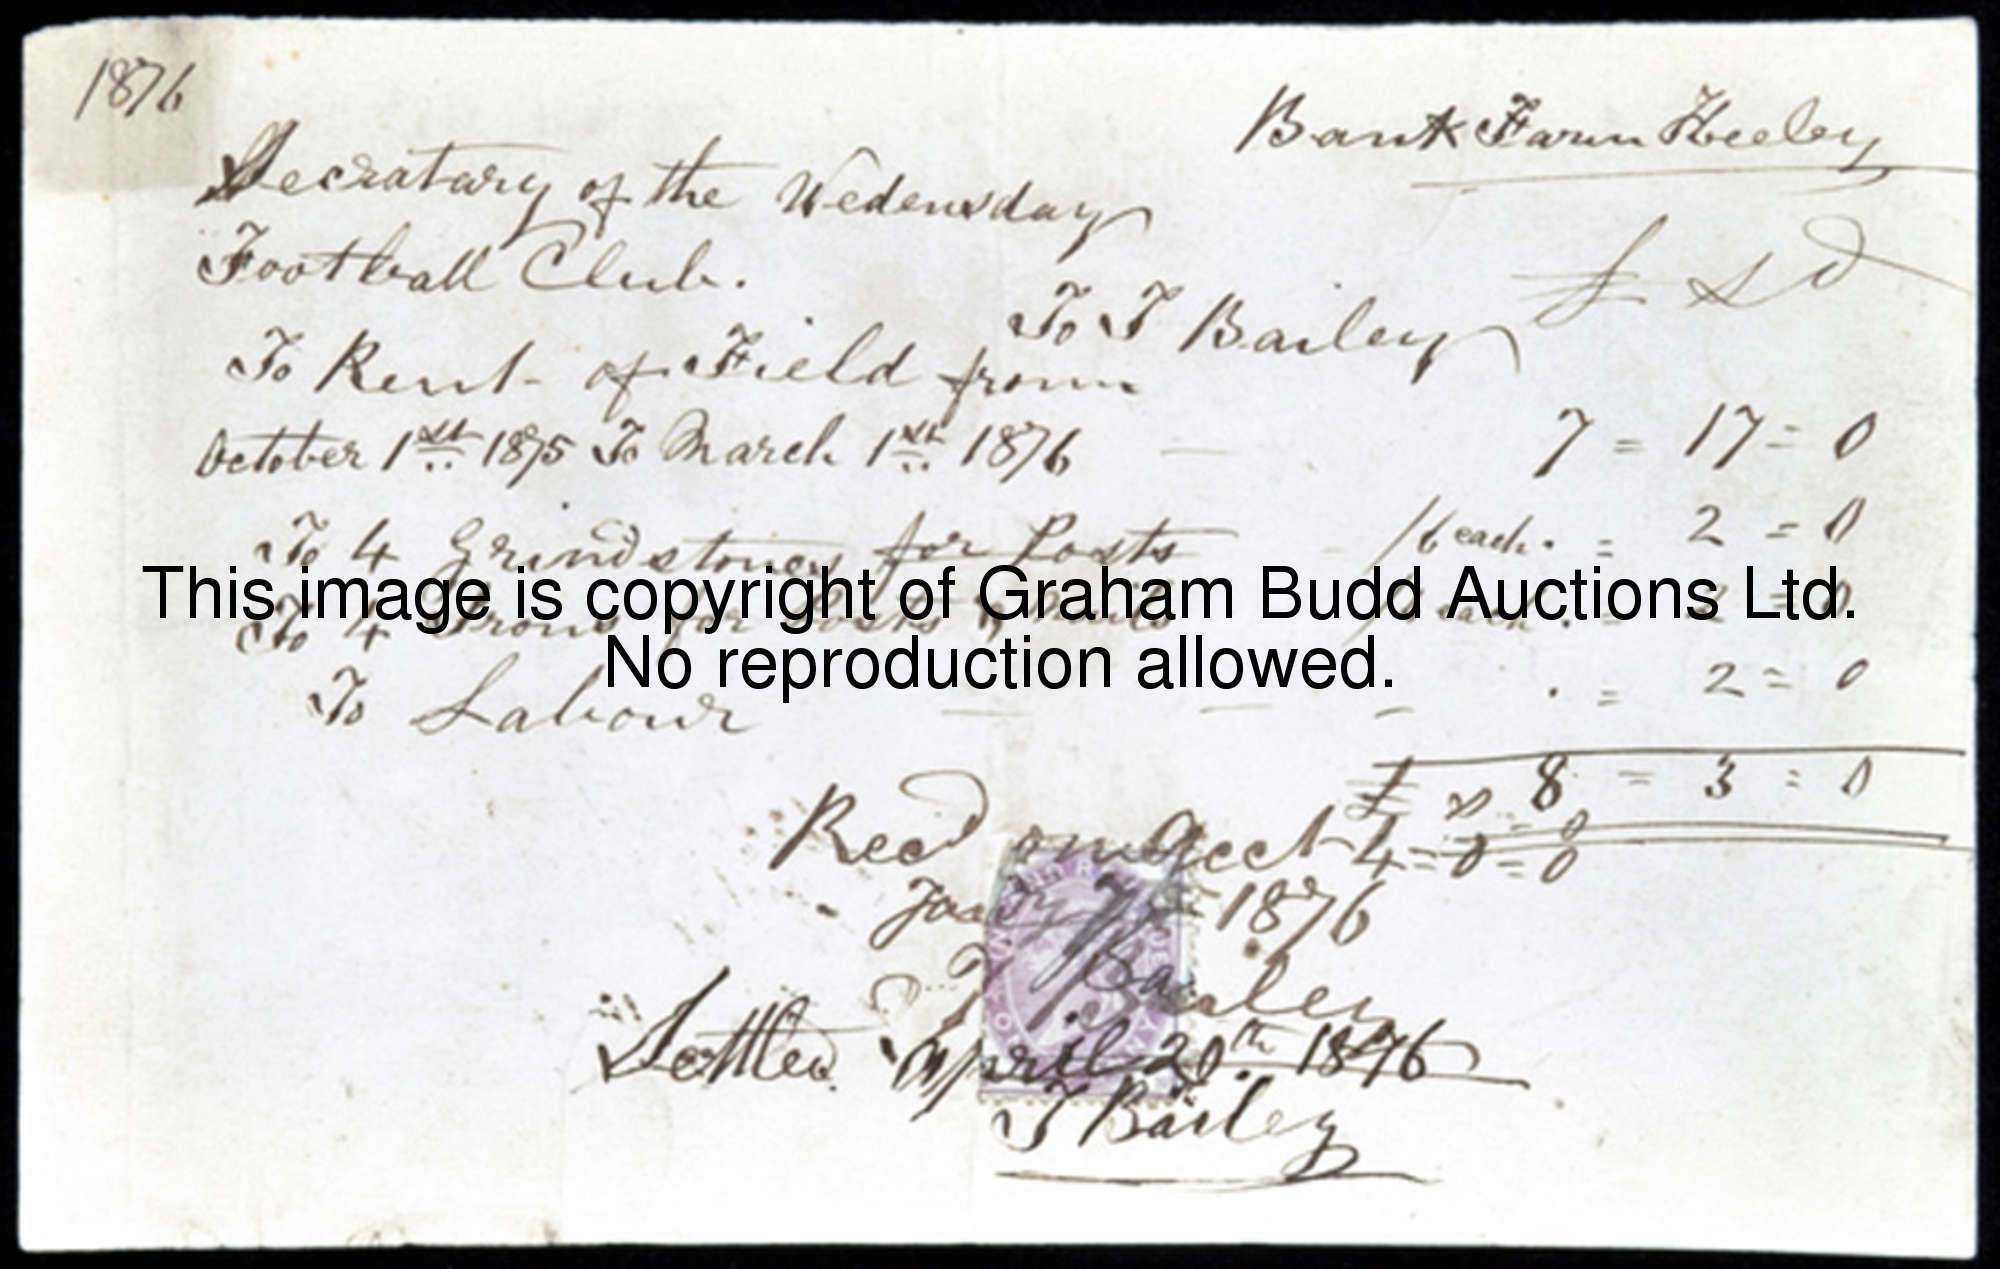 1876
Bank Farm Heeley
Secratary of the Wedensday
Football Club.
£ s d
To T Bailey
To Rent of Field from
October 1st 1875 To March 1st 1876 7 = 17 = 0
To 4 Grindstones for Posts 1/6 each . = 2 = 0
To 4 for = 2 = 0
This image is copyright of Graham Budd Auctions Ltd.
No reproduction allowed.
To Labour . = 2 = 0
£ 8 = 3 = 0
Recd on Acct 4 = 0 = 0
1876
T Bailey
Settled April 20th 1876
T Bailey